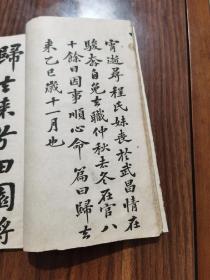 宵逝尋程氏妹喪於武昌情在
駿奔自免去職仲秋至冬在官八
十餘日因事順心命篇曰歸去
來乙巳歲十一月也
歸去來兮田園將